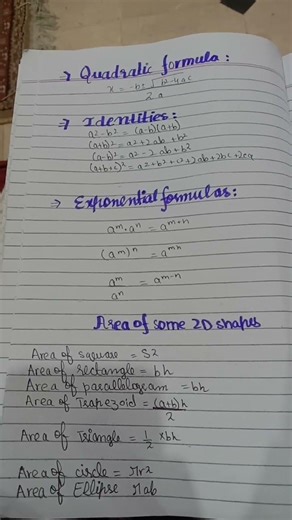 → Quadratic formula:
x = -b ± √b²-4ac
2a
→ Identities:
a²-b² = (a-b)(a+b)
(a+b)² = a²+2ab+b²
(a-b)² = a²-2ab+b²
(a+b+c)² = a²+b²+c²+2ab+2bc+2ca
→ Exponential formulas:
aᵐ.aⁿ = aᵐ⁺ⁿ
(aᵐ)ⁿ = aᵐⁿ
aᵐ/aⁿ = aᵐ⁻ⁿ
Area of some 2D shapes
Area of square = S2
Area of rectangle = bh
Area of parallelogram = bh
Area of Trapezoid = (a+b)h/2
Area of Triangle = 1/2 × bh
Area of circle = πr2
Area of Ellipse πab